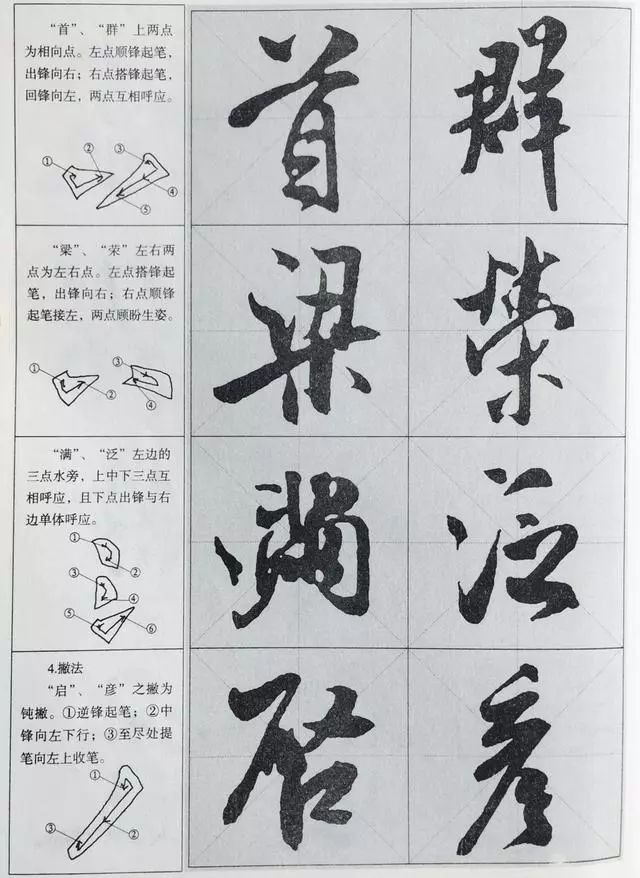 “首”、“群”上两点
为相向点。左点顺锋起笔，
出锋向右；右点搭锋起笔，
回锋向左，两点互相呼应。
① ② ③ ④ ⑤
首 群
“梁”、“荣”左右两
点为左右点。左点搭锋起
笔，出锋向右；右点顺锋
起笔接左，两点顾盼生姿。
① ② ③ ④
梁 榮
“满”、“泛”左边的
三点水旁，上中下三点互
相呼应，且下点出锋与右
边单体呼应。
① ② ③ ④ ⑤ ⑥
满 泛
4.撇法
“启”、“彦”之撇为
钝撇。①逆锋起笔；②中
锋向左下行；③至尽处提
笔向左上收笔。
① ② ③
启 彦